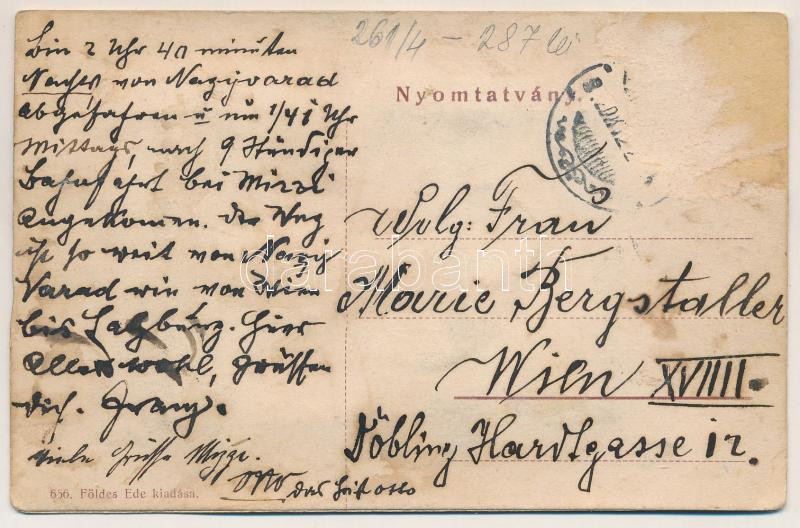 261/4 - 287 lei
Nyomtatvány.
Bin 2 Uhr 40 minuten
Nachts von Nagyvarad
abgefahren u um 1/4 1 Uhr
Mittags, nach 9 Stündiger
Bahnfahrt bei Mizzi
angekomen. der Weg
ist so weit von Nagy
Varad wie von Wien
bis Salzburg. Hier
Alles wohl, Grüssen
dich. Franz.
Viele Grüsse Mizzi.
Otto
das heist otto
Wolg: Frau
Marie Bergstaller
Wien XVIIII.
Döbling Hardtgasse 12.
656. Földes Ede kiadása.
darabanth